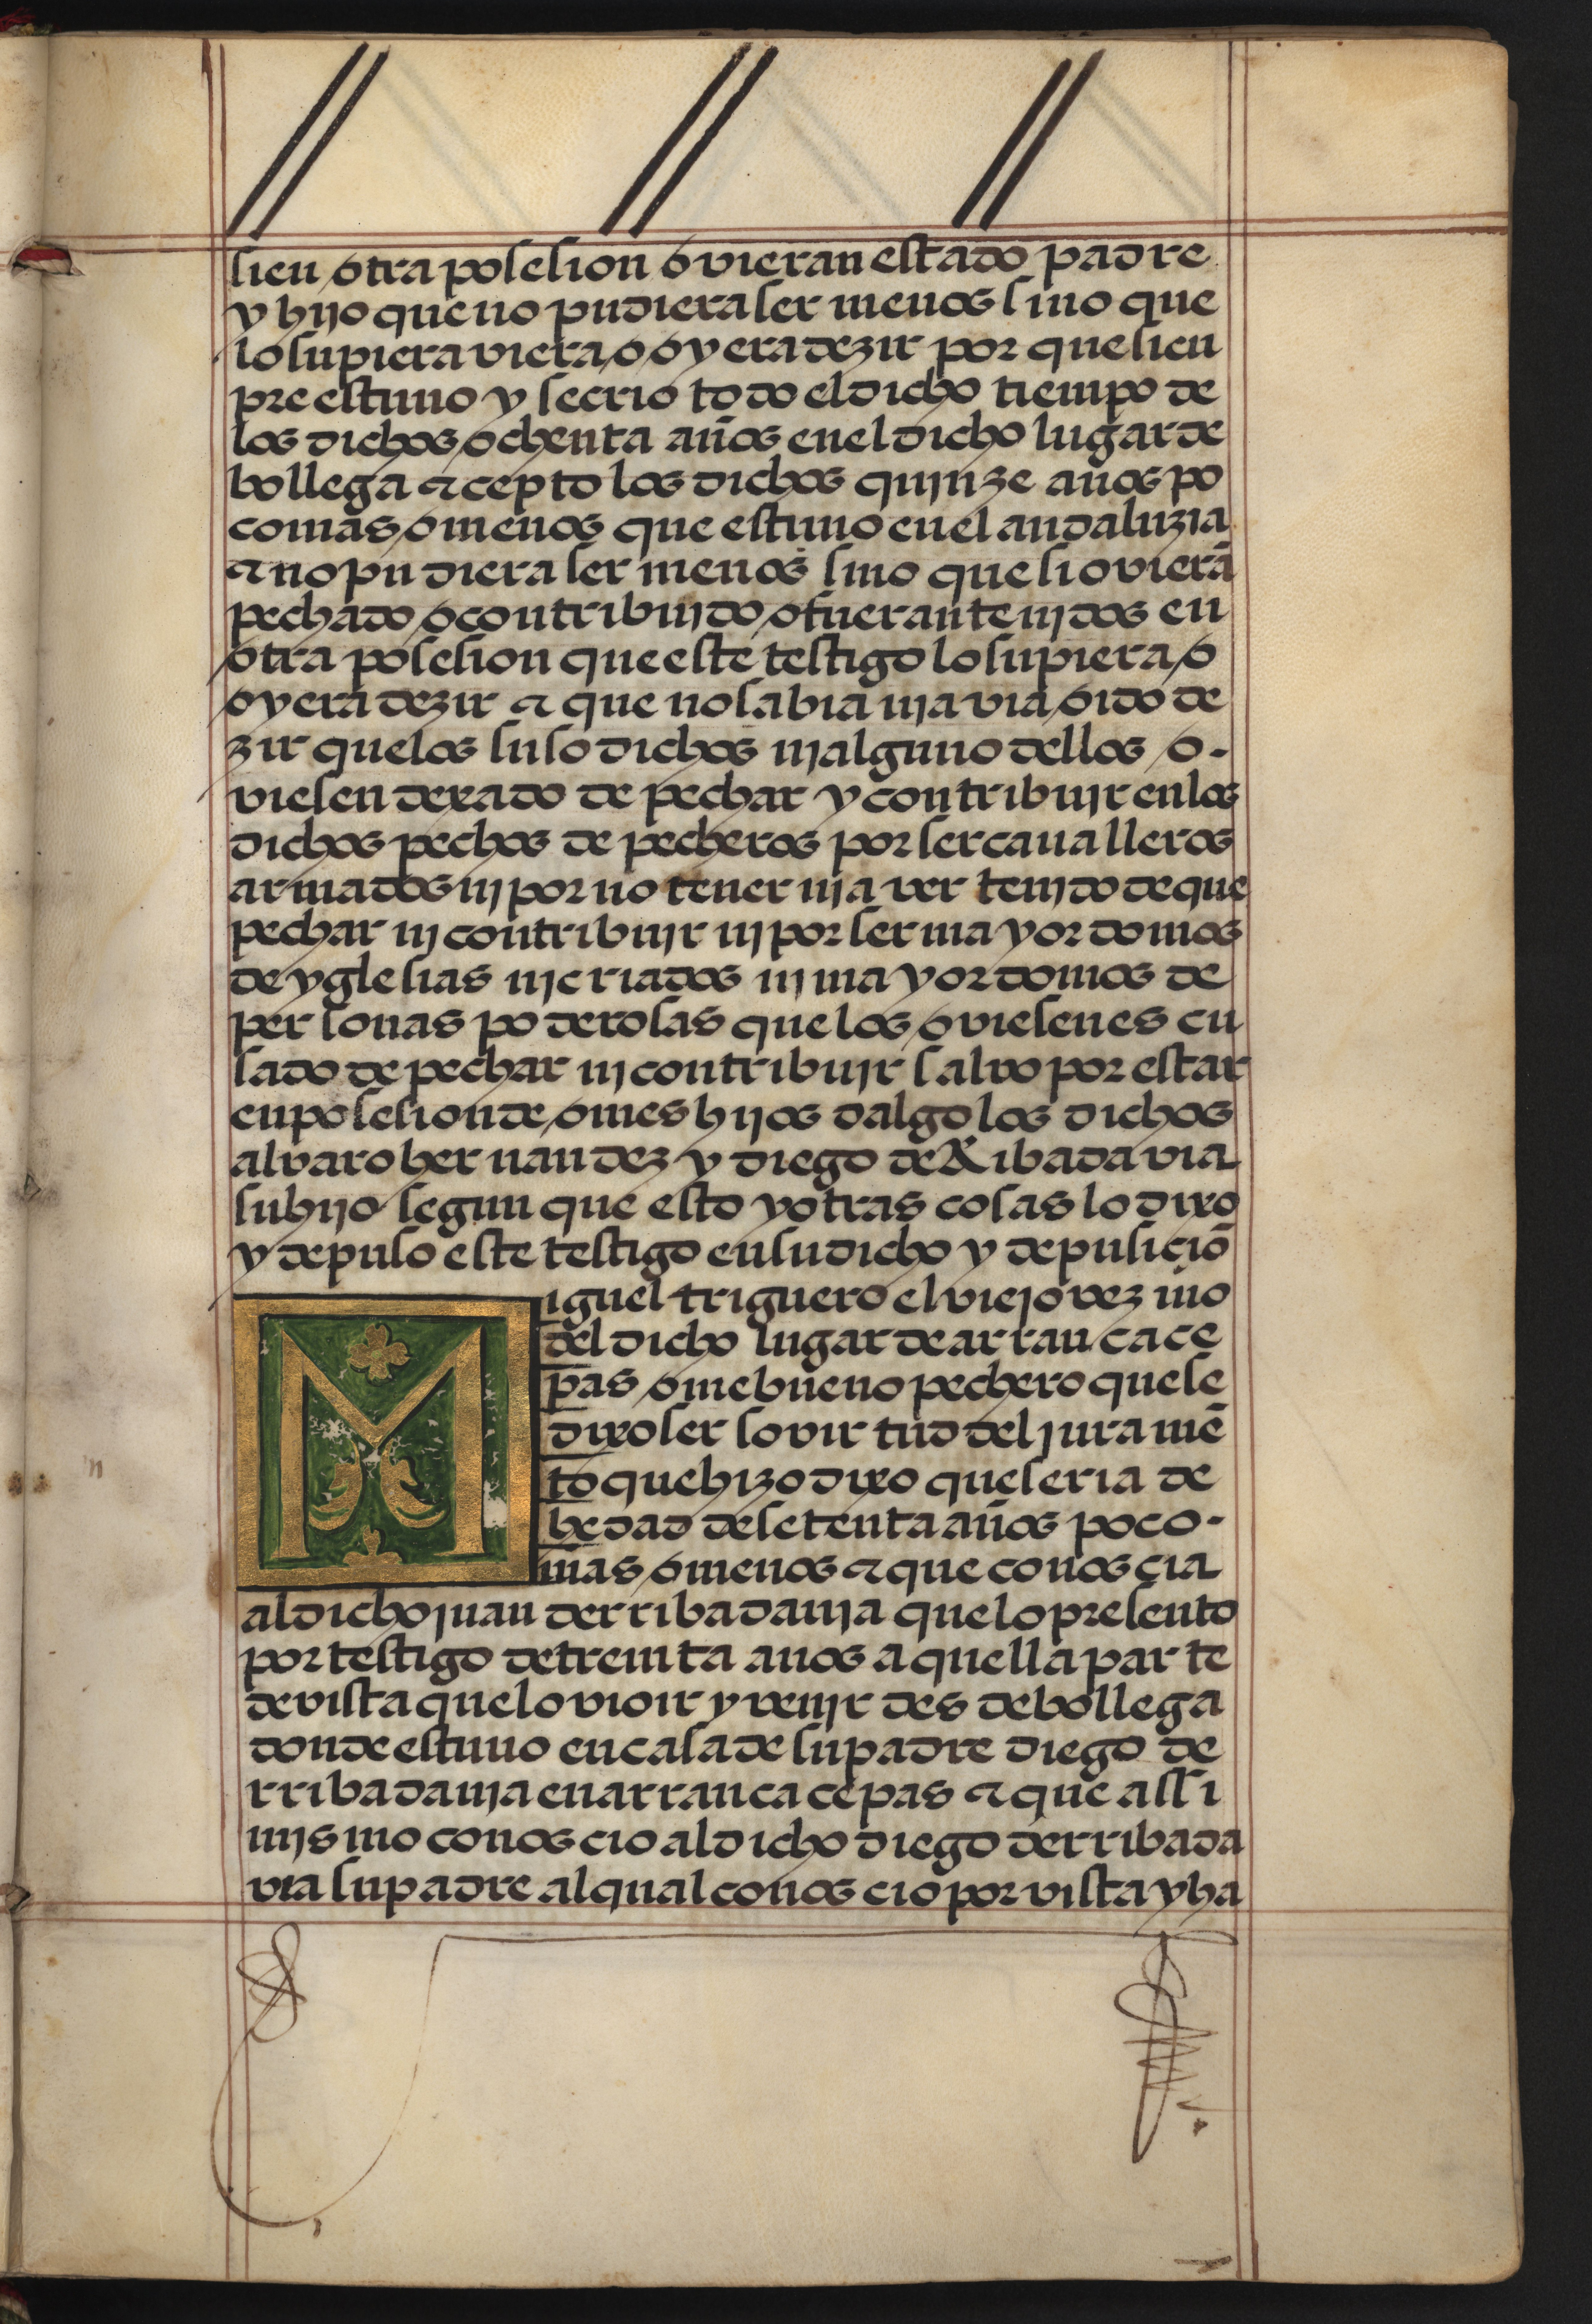 sien otra posesion ovieran estado padre
y hijo que no pudiera ser menos sino que
lo supiera viera o oyera dezir por que sien
pre estuuo y se crio todo el dicho tiempo de
los dichos ochenta años en el dicho lugar de
bollega ecepto los dichos quinze años po
co mas o menos que estuuo en el andaluzia
e no pudiera ser menos sino que si ovierā
pechado o contribuido o fueran tenidos en
otra posesion que este testigo lo supiera o
oyera dezir e que no sabia ni avia oido de
zir que los suso dichos ni alguno dellos o-
viesen dexado de pechar y contribuir en los
dichos pechos de pecheros por ser caualleros
armados ni por no tener ni aver tenido de que
pechar ni contribuir ni por ser mayordomos
de yglesias ni criados ni mayordomos de
personas poderosas que los oviesen escu
sado de pechar ni contribuir salvo por estar
en posesion de omes hijos dalgo los dichos
alvaro hernandez y diego de Ribadavia
su hijo segun que esto y otras cosas lo dixo
y depuso este testigo en su dicho y depusiciō
Miguel triguero el viejo vezino
del dicho lugar de arrancace
pas ome bueno pechero que se
dixo ser so virtud del juramē
to que hizo dixo que seria de
hedad de setenta años poco-
mas o menos e que conoscia
al dicho juan derribadauia que lo presento
por testigo de treinta años a quella parte
de vista que lo vio ir y venir desde bollega
donde estuuo en casa de su padre diego de
rribadauia en arrancacepas e que assi
mismo conoscio al dicho diego derribada
via su padre al qual conoscio por vista y ha